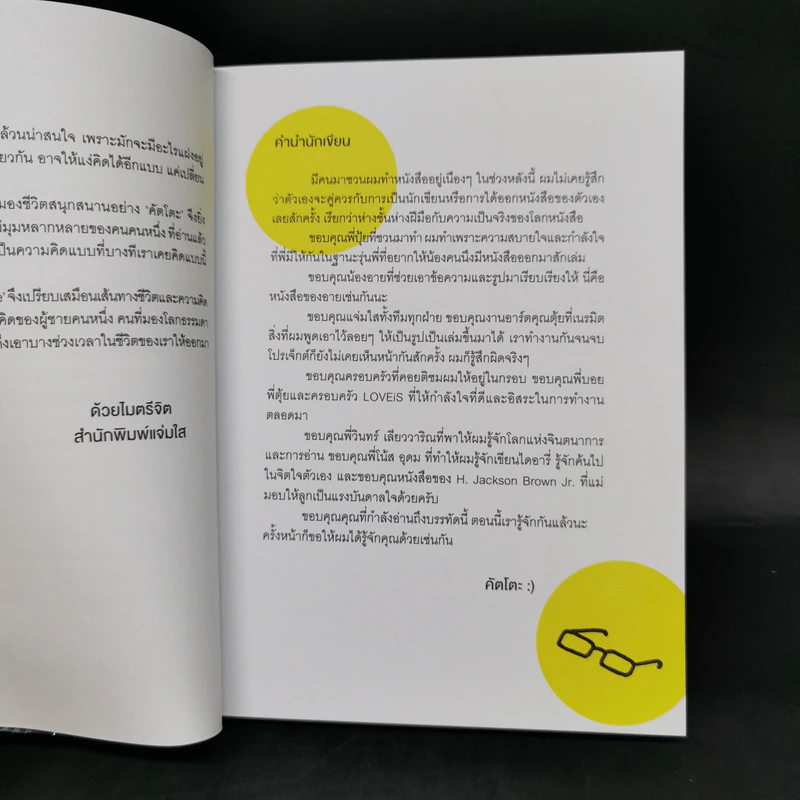 ล้วนน่าสนใจ เพราะมักจะมีอะไรแฝงอยู่
ยวกัน อาจให้แง่คิดได้อีกแบบ แค่เปลี่ยน
มองชีวิตสนุกสนานอย่าง ‘คัตโตะ’ จึงยิ่ง
มุมหลากหลายของคนคนหนึ่ง ที่อ่านแล้ว
เป็นความคิดแบบที่บางทีเราเคยคิดแบบนี้
e’ จึงเปรียบเสมือนเส้นทางชีวิตและความคิด
คิดของผู้ชายคนหนึ่ง คนที่มองโลกธรรมดา
ดึงเอาบางช่วงเวลาในชีวิตของเราให้ออกมา
ด้วยไมตรีจิต
สำนักพิมพ์แจ่มใส
คำนำนักเขียน
มีคนมาชวนผมทำหนังสืออยู่เนืองๆ ในช่วงหลังนี้ ผมไม่เคยรู้สึก
ว่าตัวเองจะคู่ควรกับการเป็นนักเขียนหรือการได้ออกหนังสือของตัวเอง
เลยสักครั้ง เรียกว่าห่างชั้นห่างฝีมือกับความเป็นจริงของโลกหนังสือ
ขอบคุณพี่ปุ้ยที่ชวนมาทำ ผมทำเพราะความสบายใจและกำลังใจ
ที่พี่มีให้กันในฐานะรุ่นพี่ที่อยากให้น้องคนนึงมีหนังสือออกมาสักเล่ม
ขอบคุณน้องอายที่ช่วยเอาข้อความและรูปมาเรียบเรียงให้ นี่คือ
หนังสือของอายเช่นกันนะ
ขอบคุณแจ่มใสทั้งทีมทุกฝ่าย ขอบคุณงานอาร์ตคุณตุ้ยที่เนรมิต
สิ่งที่ผมพูดเอาไว้ลอยๆ ให้เป็นรูปเป็นเล่มขึ้นมาได้ เราทำงานกันจนจบ
โปรเจ็กต์ก็ยังไม่เคยเห็นหน้ากันสักครั้ง ผมก็รู้สึกผิดจริงๆ
ขอบคุณครอบครัวที่คอยติชมผมให้อยู่ในกรอบ ขอบคุณพี่บอย
พี่ตุ้ยและครอบครัว LOVEiS ที่ให้กำลังใจที่ดีและอิสระในการทำงาน
ตลอดมา
ขอบคุณพี่วินทร์ เลียววาริณที่พาให้ผมรู้จักโลกแห่งจินตนาการ
และการอ่าน ขอบคุณพี่โน้ส อุดม ที่ทำให้ผมรู้จักเขียนไดอารี่ รู้จักค้นไป
ในจิตใจตัวเอง และขอบคุณหนังสือของ H. Jackson Brown Jr. ที่แม่
มอบให้ลูกเป็นแรงบันดาลใจด้วยครับ
ขอบคุณคุณที่กำลังอ่านถึงบรรทัดนี้ ตอนนี้เรารู้จักกันแล้วนะ
ครั้งหน้าก็ขอให้ผมได้รู้จักคุณด้วยเช่นกัน
คัตโตะ :)